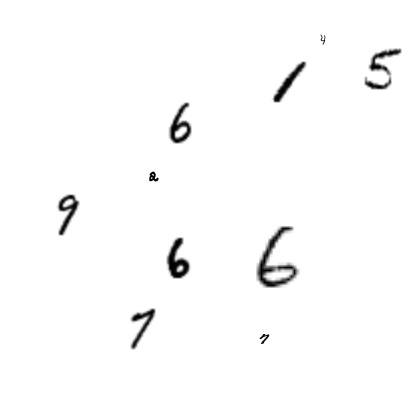 4
1 5
6
2
9
6 6
7 7